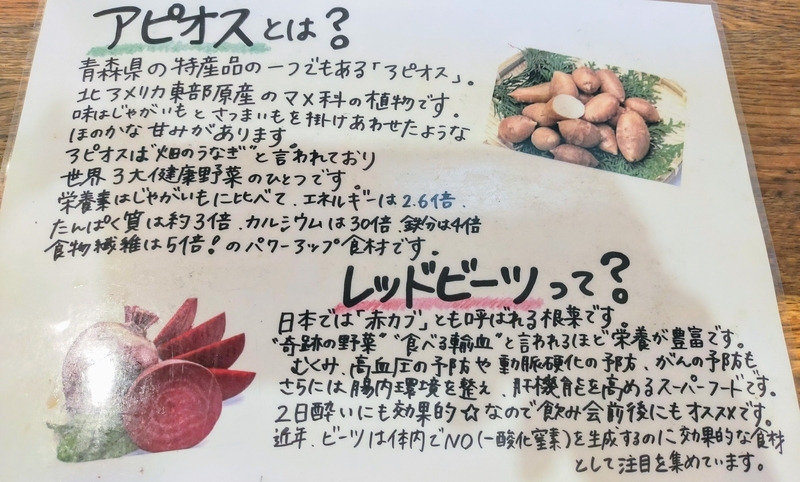 アピオスとは?
青森県の特産品の一つでもある「アピオス」。
北アメリカ東部原産のマメ科の植物です。
味はじゃがいもとさつまいもを掛けあわせたような
ほのかな甘みがあります
アピオスは"畑のうなぎ"と言われており
世界3大健康野菜のひとつです
栄養素はじゃがいもに比べて、エネルギーは2.6倍、
たんぱく質は約3倍、カルシウムは30倍、鉄分は4倍
食物繊維は5倍!のパワーアップ食材です。
レッドビーツって?
日本では「赤カブ」とも呼ばれる根菜です
"奇跡の野菜" "食べる輸血"と言われるほど栄養が豊富です。
むくみ、高血圧の予防や動脈硬化の予防、がんの予防も
さらには腸内環境を整え、肝機能を高めるスーパーフードです。
2日酔いにも効果的☆なので飲み会前後にもオススメです。
近年、ビーツは体内でNO(一酸化窒素)を生成するのに効果的な食材
として注目を集めています。